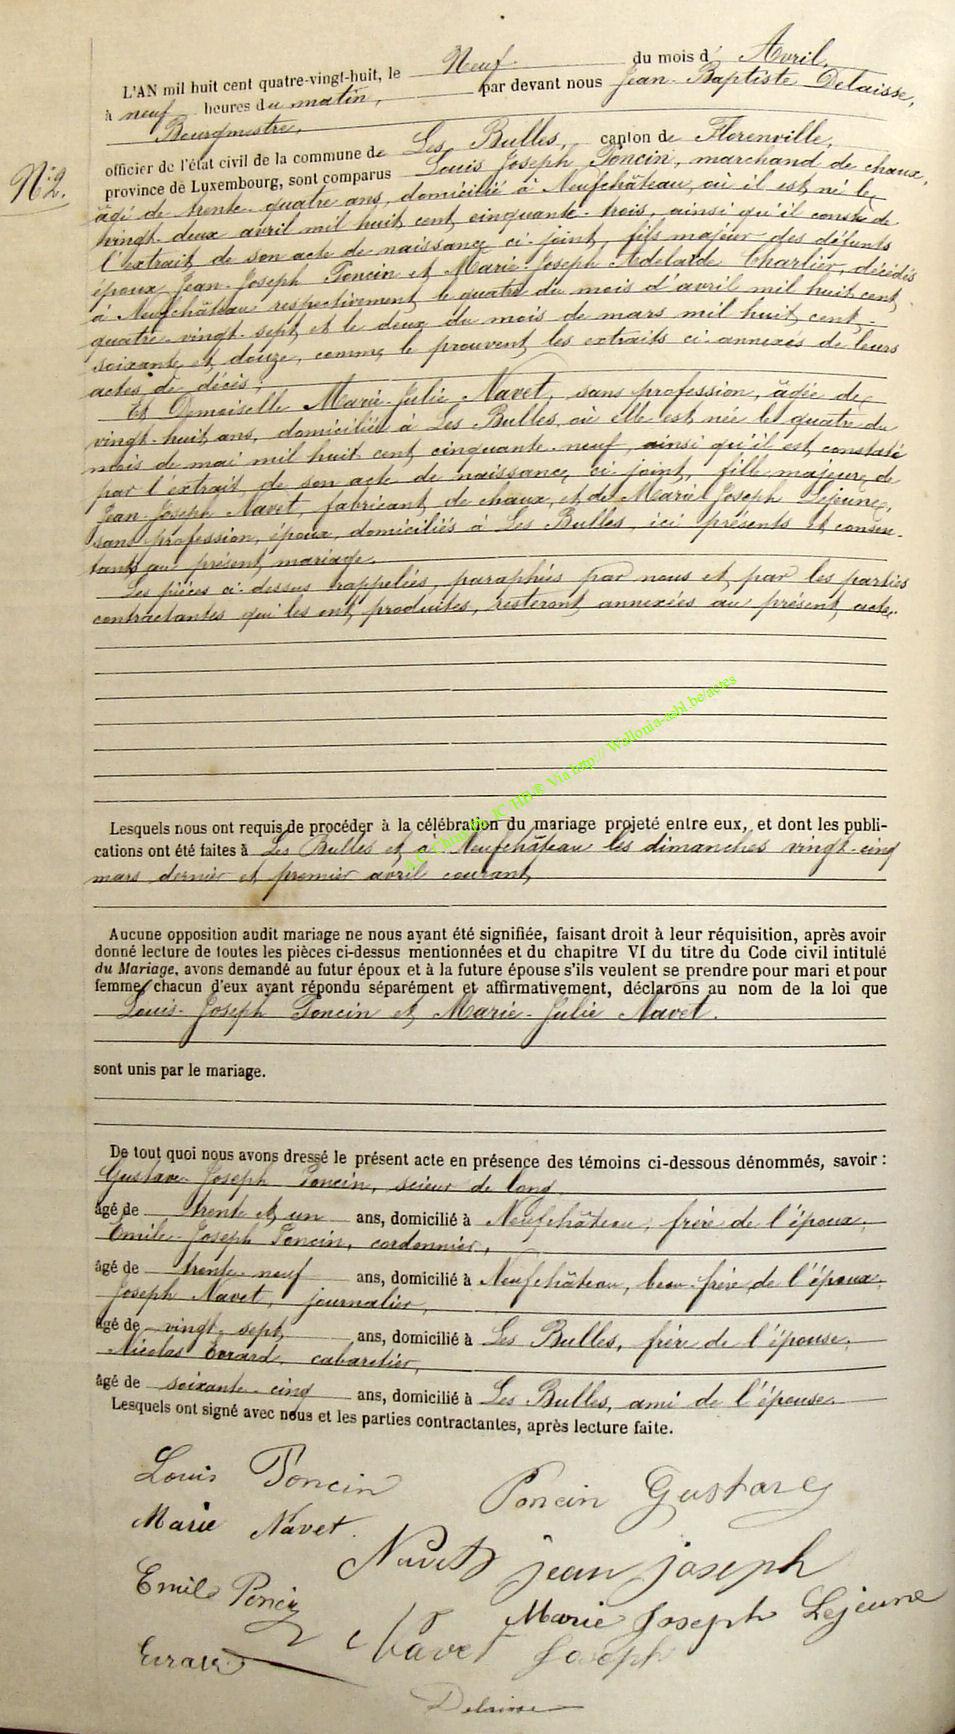 L'AN mil huit cent quatre-vingt-huit, le Neuf du mois d' Avril,
à neuf heures du matin, par devant nous Jean-Baptiste Delaisse,
Bourgmestre,
officier de l'état civil de la commune de Les Bulles, canton de Florenville,
province de Luxembourg, sont comparus Louis Joseph Poncin, marchand de chaux,
N°2.
âgé de trente-quatre ans, domicilié à Neufchâteau, où il est né le
vingt-deux avril mil huit cent cinquante-trois, ainsi qu'il conste de
l'extrait de son acte de naissance ci-joint, fils majeur des défunts
époux Jean-Joseph Poncin et Marie-Joseph Adelaïde Charlier, décédés
à Neufchâteau respectivement le quatre du mois d'avril mil huit cent
quatre-vingt-sept et le deux du mois de mars mil huit cent-
soixante et douze, comme le prouvent les extraits ci-annexés de leurs
actes de décès;
Et Demoiselle Marie-Julie Navet, sans profession, âgée de
vingt-huit ans, domiciliée à Les Bulles, où elle est née le quatre du
mois de mai mil huit cent cinquante-neuf, ainsi qu'il est constaté
par l'extrait de son acte de naissance ci-joint, fille majeure de
Jean-Joseph Navet, fabricant de chaux, et de Marie Joseph Lejeune,
sans profession, époux, domiciliés à Les Bulles, ici présents et consen-
tants au présent mariage.
Les pièces ci-dessus rappelées, paraphées par nous et par les parties
contractantes qui les ont produites, resteront annexées au présent acte.
A.C. Chiny Via http:// Wallonia-asbl.be/actes
Lesquels nous ont requis de procéder à la célébration du mariage projeté entre eux, et dont les publi-
cations ont été faites à Les Bulles et à Neufchâteau les dimanches vingt-cinq
mars dernier et premier avril courant
Aucune opposition audit mariage ne nous ayant été signifiée, faisant droit à leur réquisition, après avoir
donné lecture de toutes les pièces ci-dessus mentionnées et du chapitre VI du titre du Code civil intitulé
du Mariage, avons demandé au futur époux et à la future épouse s'ils veulent se prendre pour mari et pour
femme, chacun d'eux ayant répondu séparément et affirmativement, déclarons au nom de la loi que
Louis-Joseph Poncin et Marie-Julie Navet.
sont unis par le mariage.
De tout quoi nous avons dressé le présent acte en présence des témoins ci-dessous dénommés, savoir :
Gustave Joseph Poncin, scieur de long
âgé de trente et un ans, domicilié à Neufchâteau, frère de l'époux.
Emile-Joseph Poncin, cordonnier,
âgé de trente-neuf ans, domicilié à Neufchâteau, beau-frère de l'époux.
Joseph Navet, journalier,
âgé de vingt-sept ans, domicilié à Les Bulles, frère de l'épouse.
Nicolas Evrard, cabaretier,
âgé de soixante-cinq ans, domicilié à Les Bulles, ami de l'épouse.
Lesquels ont signé avec nous et les parties contractantes, après lecture faite.
Louis Poncin
Poncin Gustave
Marie Navet
Navet jean joseph
Emile Poncin
Marie Joseph Lejeune
Navet Joseph
Evrard
Delaisse